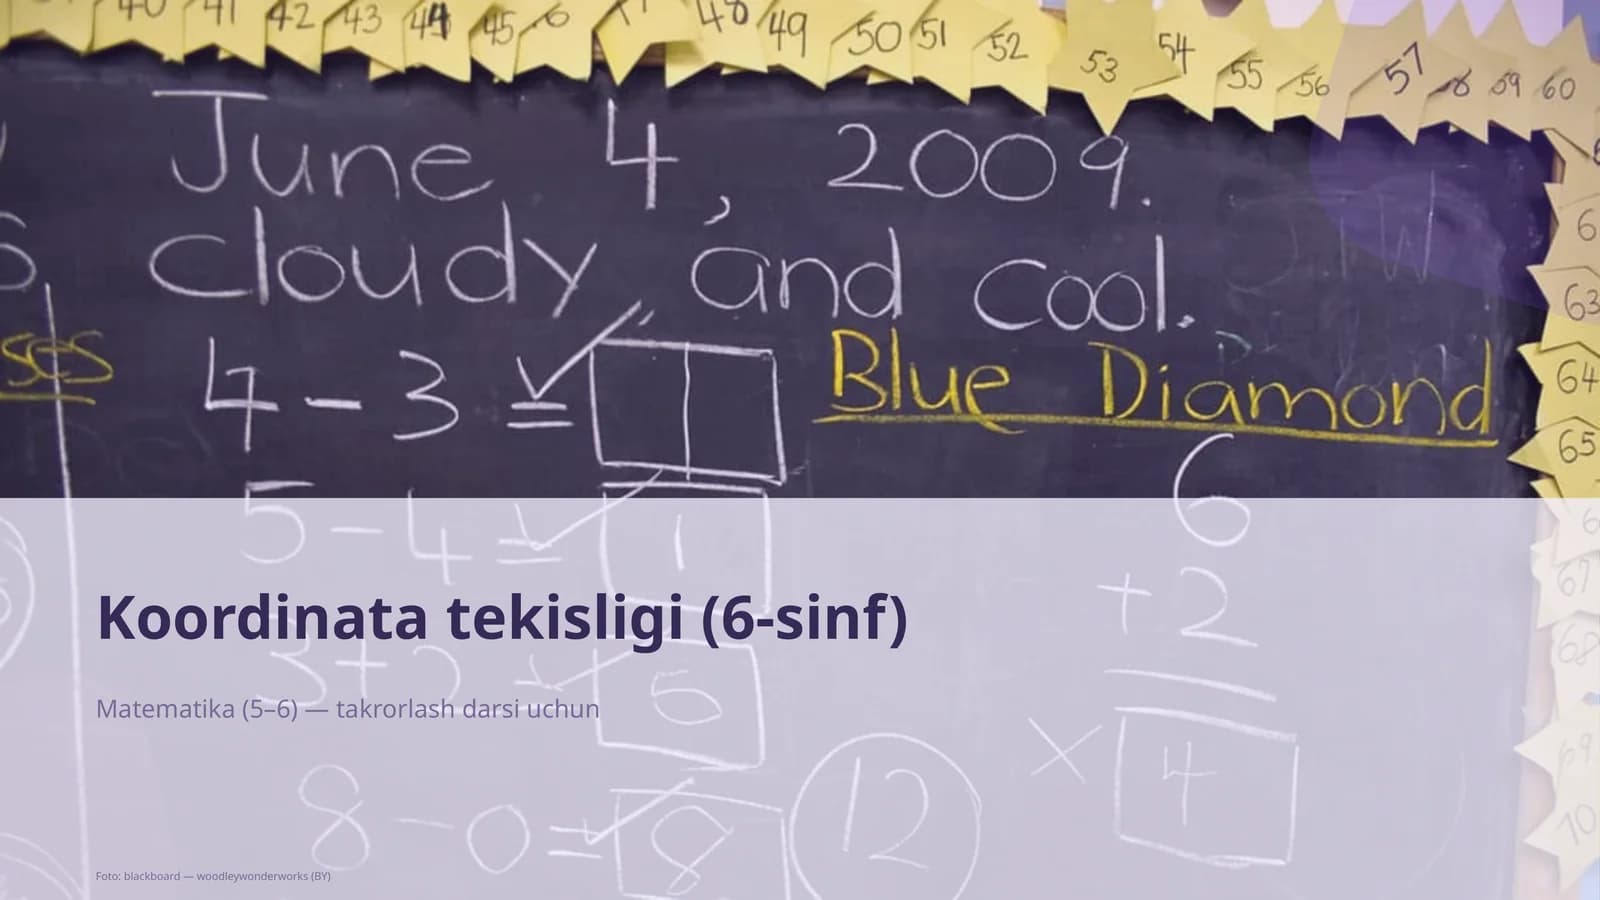 40 41 42 43 44 45 48 49 50 51 52 53 54 55 56 57 58 59 60
June 4, 2009.
cloudy, and cool.
ses
4 - 3 =
Blue Diamond
63
64
65
5 - 4 = 1
6
+ 2
Koordinata tekisligi (6-sinf)
3 + 2 5
Matematika (5–6) — takrorlash darsi uchun
4
69
70
8 - 0 = 8
12
Foto: blackboard — woodleywonderworks (BY)